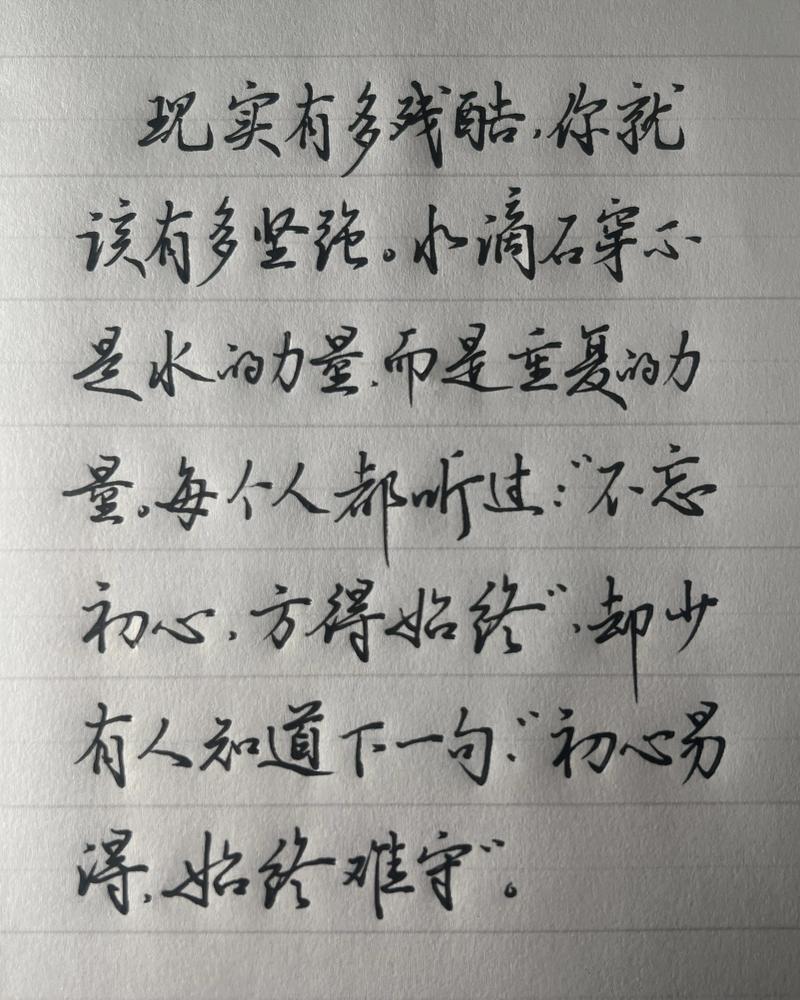 现实有多残酷，你就
该有多坚强。水滴石穿不
是水的力量，而是重复的力
量。每个人都听过：“不忘
初心，方得始终”，却少
有人知道下一句：“初心易
得，始终难守”。